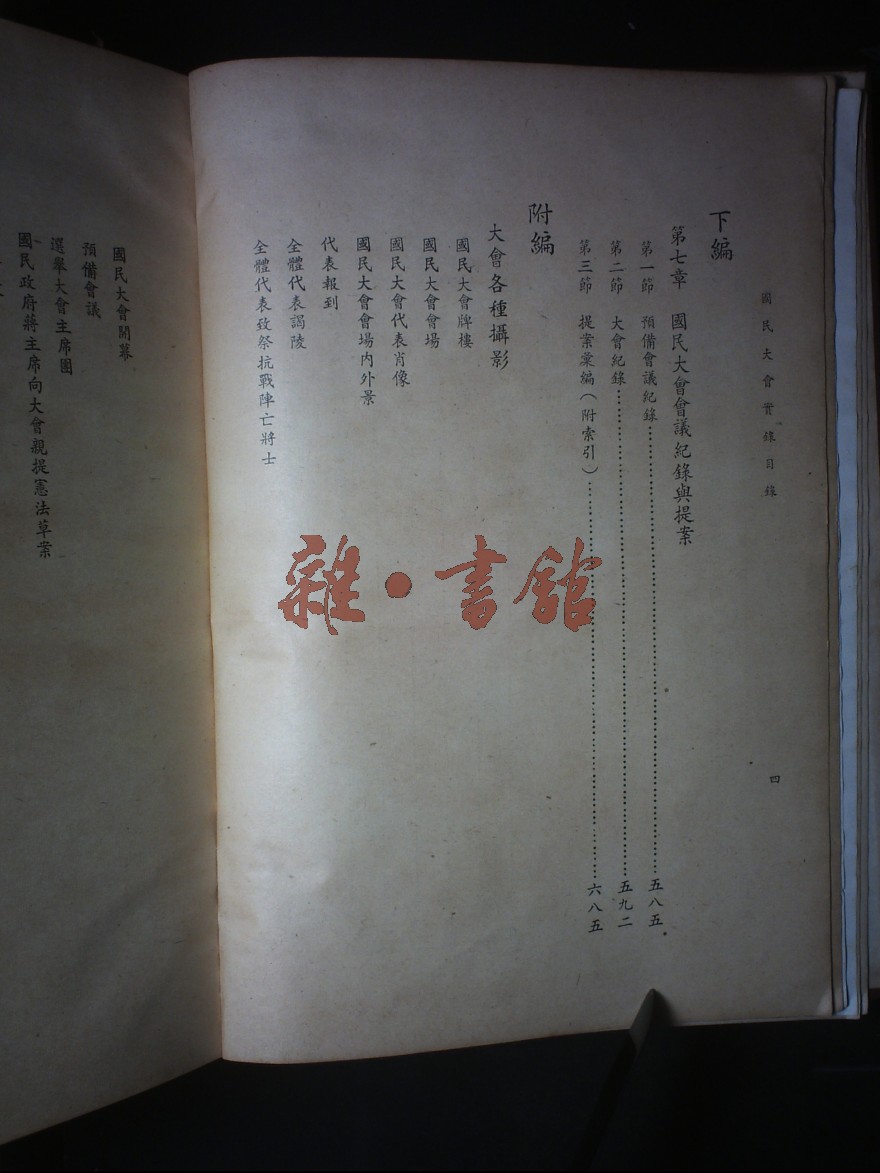 國民大會實錄目錄
四
下編
第七章　國民大會會議紀錄與提案
第一節　預備會議紀錄……五八五
第二節　大會紀錄……五九二
第三節　提案彙編（附索引）……六八五
附編
大會各種攝影
國民大會牌樓
國民大會會場
國民大會代表肖像
國民大會會場内外景
代表報到
全體代表謁陵
全體代表致祭抗戰陣亡將士
國民大會開幕
預備會議
選舉大會主席團
國民政府蔣主席向大會親提憲法草案
雜·書館